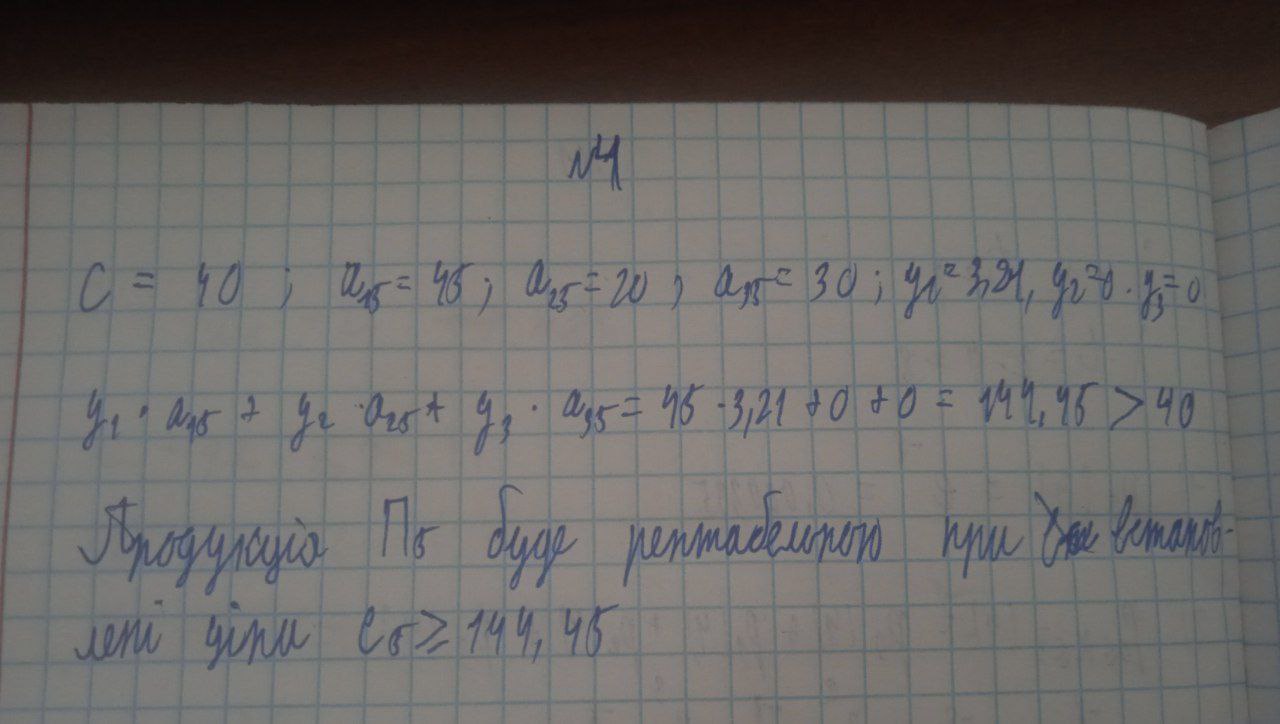 №4
C = 40 ; a₁₅ = 45 ; a₂₅ = 20 ; a₃₅ = 30 ; y₁ = 3,21, y₂ = 0 . y₃ = 0
y₁ · a₁₅ + y₂ · a₂₅ + y₃ · a₃₅ = 45 · 3,21 + 0 + 0 = 144,45 > 40
Продукція П₅ буде рентабельною при встанов-
лені ціни C₅ ≥ 144,45